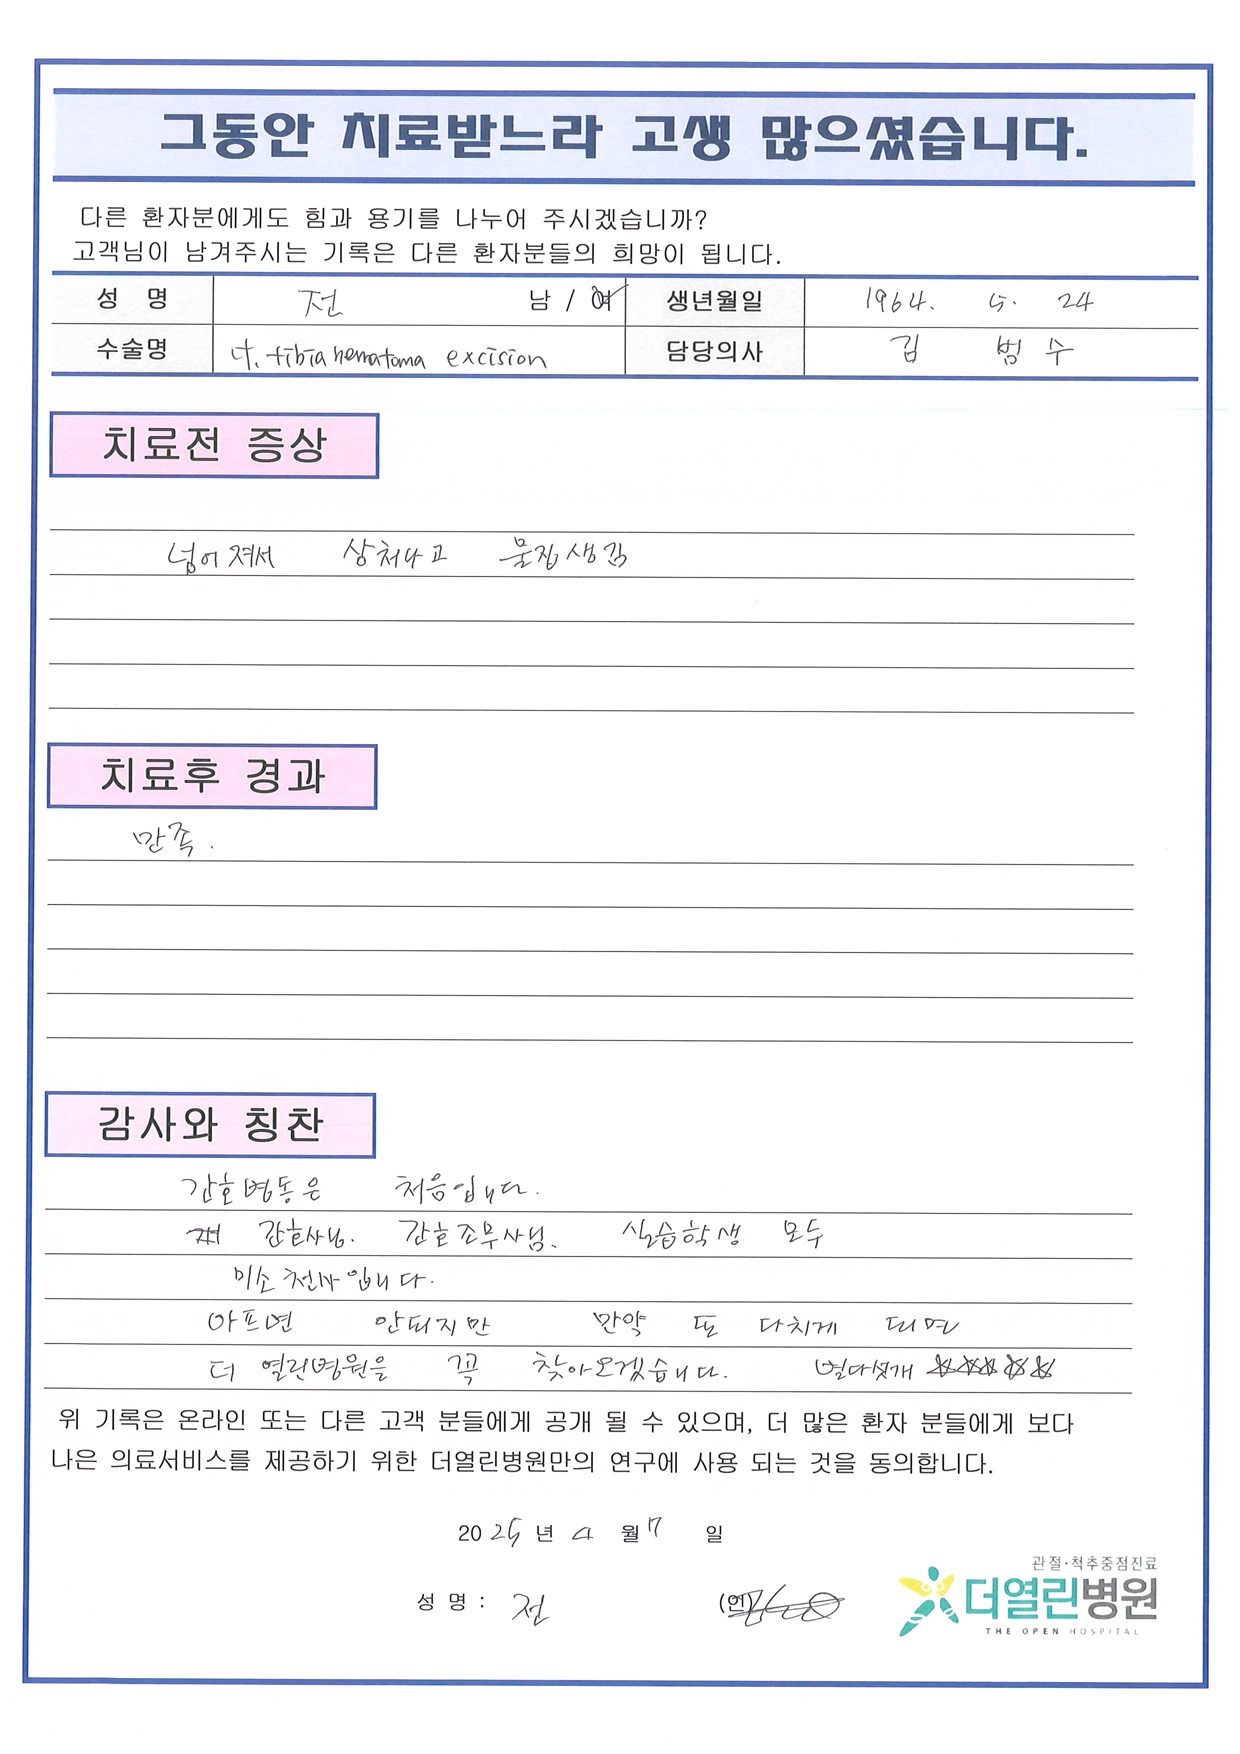 그동안 치료받느라 고생 많으셨습니다.
다른 환자분에게도 힘과 용기를 나누어 주시겠습니까?
고객님이 남겨주시는 기록은 다른 환자분들의 희망이 됩니다.
성 명 전 남 / 여 생년월일 1964. 5. 24
수술명 tibia hematoma excision 담당의사 김 범 수
치료전 증상
넘어져서 상처나고 물집생김
치료후 경과
만족.
감사와 칭찬
간호병동은 처음입니다.
간호사님. 간호조무사님. 실습학생 모두
미소천사입니다.
아프면 안되지만 만약 또 다치게 되면
더 열린병원을 꼭 찾아오겠습니다. 별다섯개 ☆☆☆☆☆
위 기록은 온라인 또는 다른 고객 분들에게 공개 될 수 있으며, 더 많은 환자 분들에게 보다
나은 의료서비스를 제공하기 위한 더열린병원만의 연구에 사용 되는 것을 동의합니다.
2025 년 4 월 7 일
관절·척추중점진료
성 명 : 전 (인) 더열린병원
THE OPEN HOSPITAL